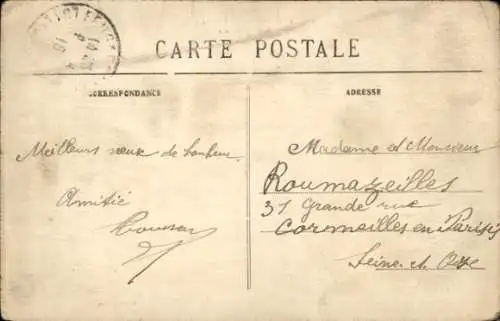 CARTE POSTALE
CORRESPONDANCE
ADRESSE
Meilleurs vœux de bonheur
Amitié
Madame et Monsieur
Roumazeilles
31 Grande rue
Cormeilles en Parisis
Seine et Oise